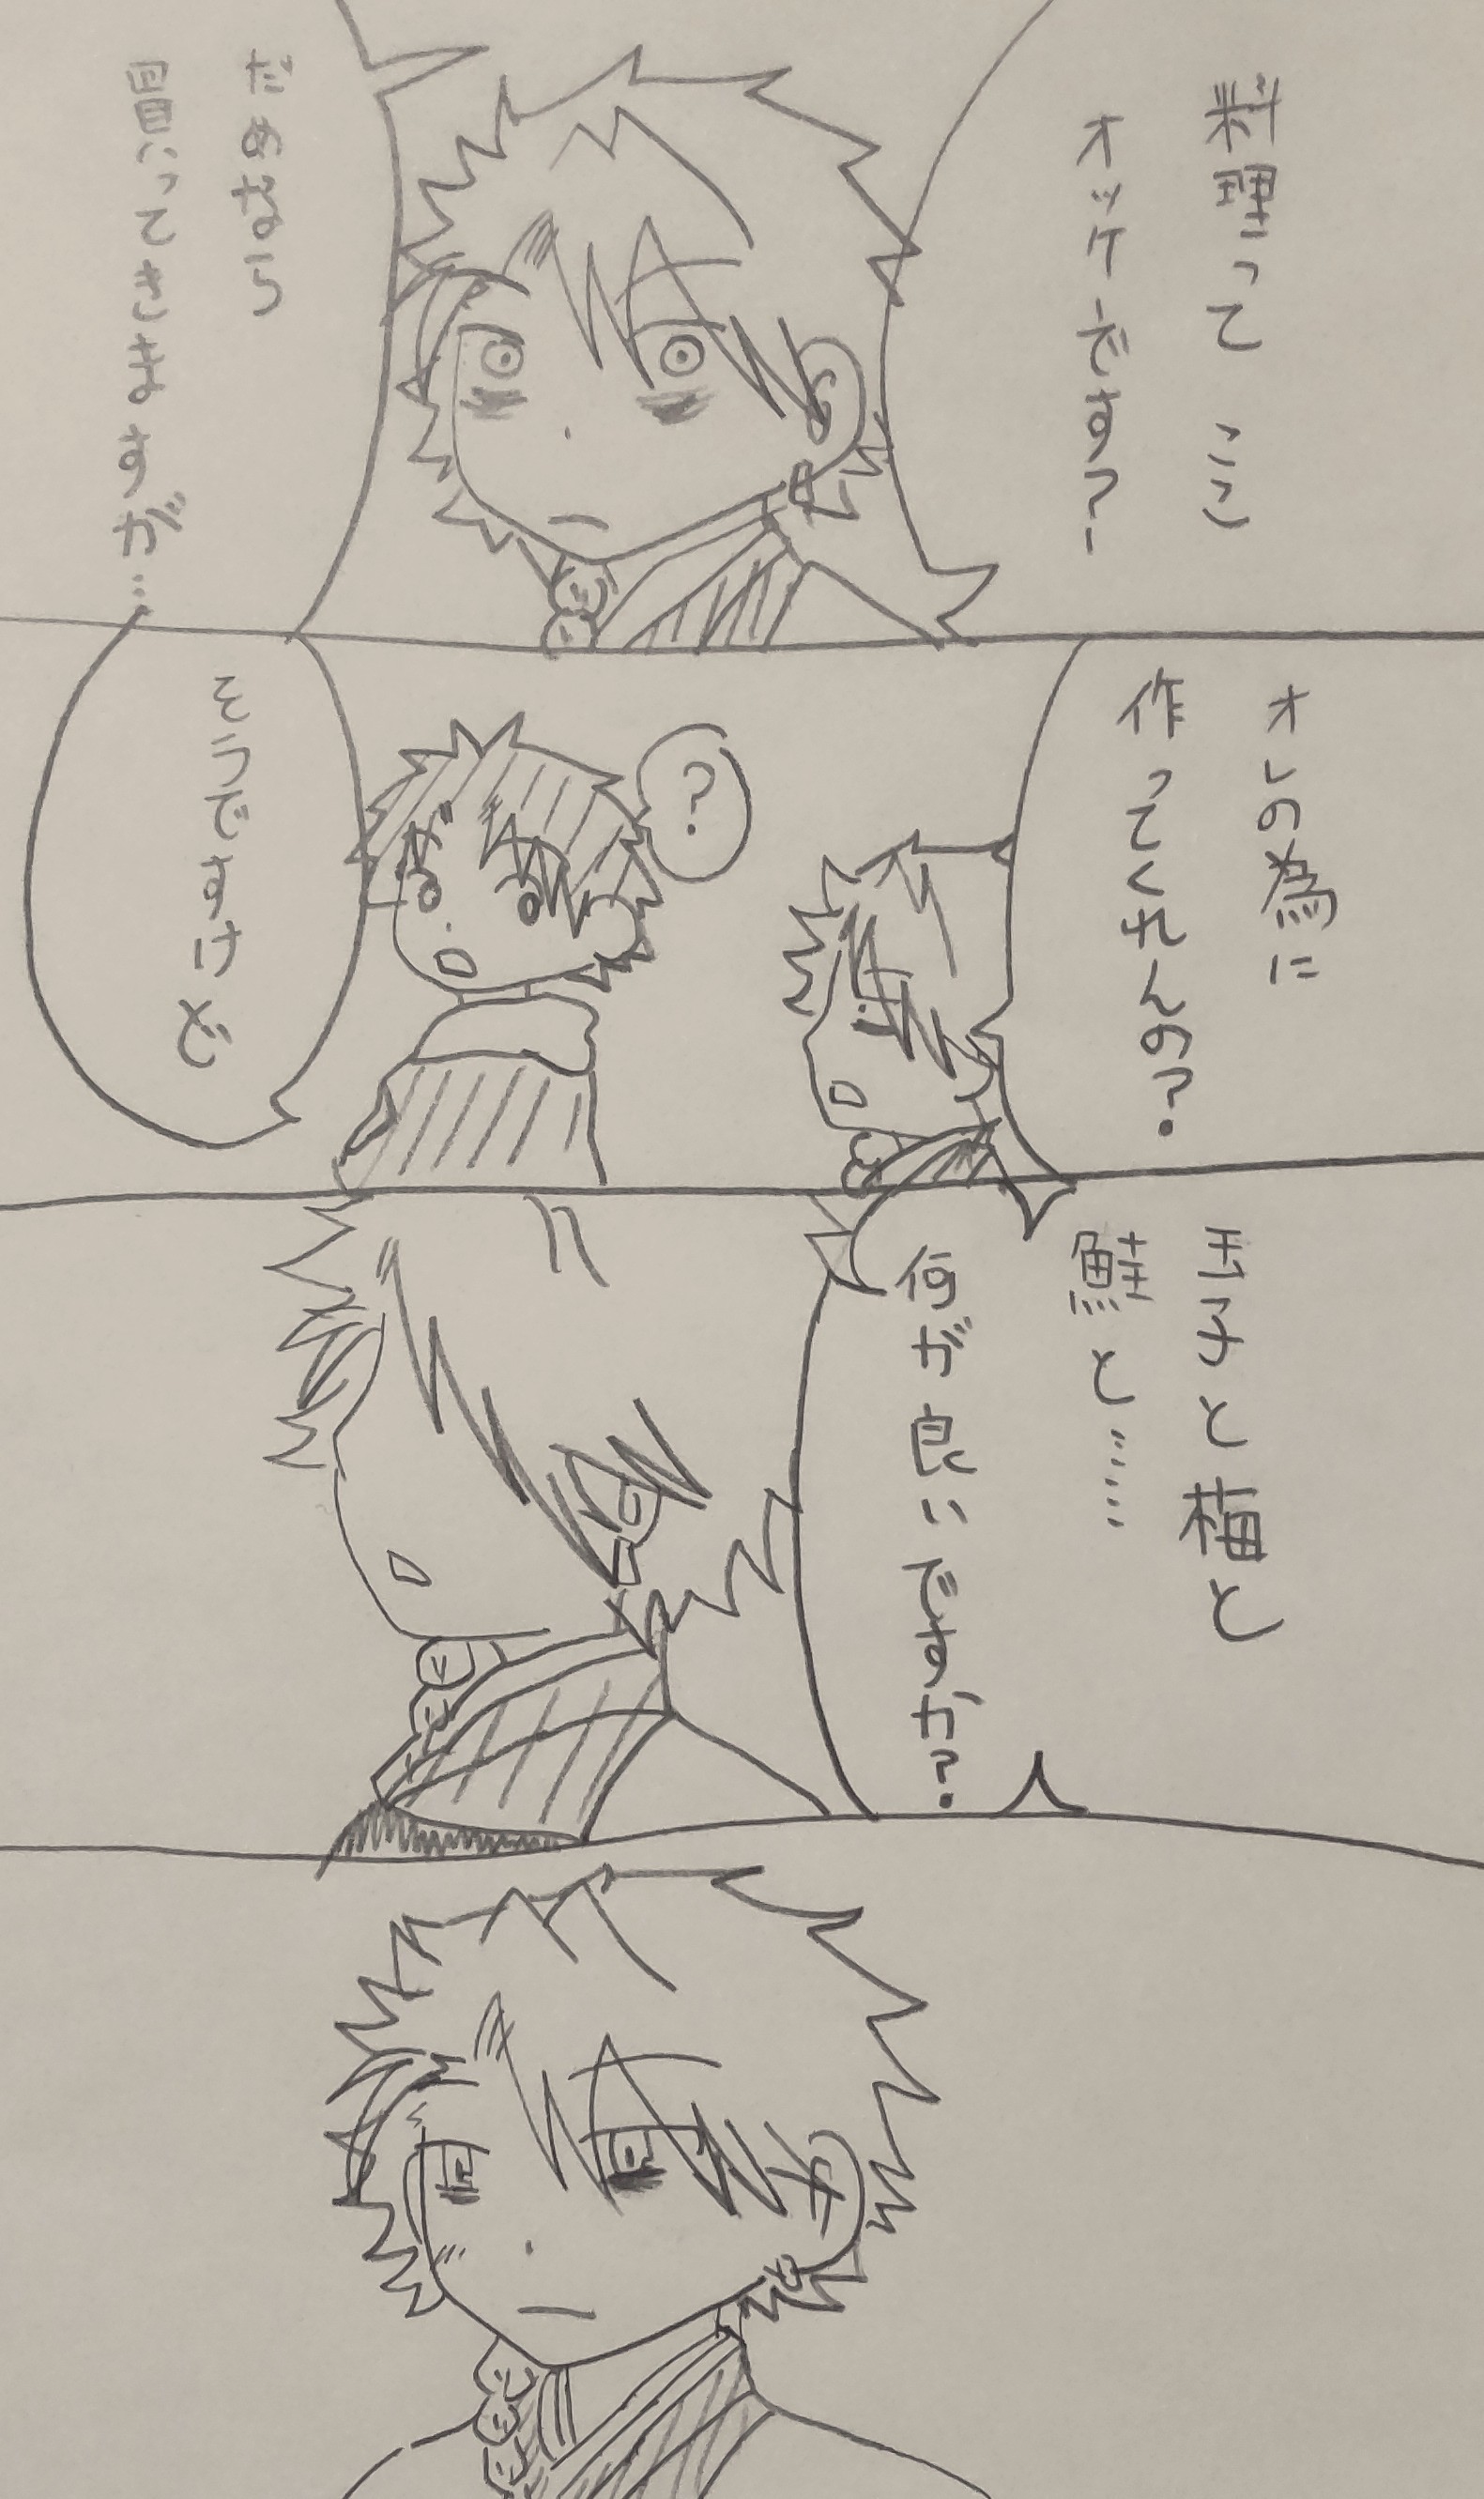 料理って ここ
オッケーです?
だめなら
買ってきますが…
オレの為に
作ってくれんの?
?
そうですけど
玉子と梅と
鮭と……
何が良いですか?